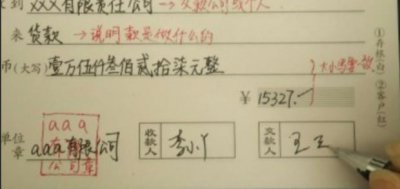 到 XXX有限责任公司 → 交款公司或个人
来 货款 → 说明款是做什么的
币(大写) 壹万伍仟叁佰贰拾柒元整
大小写要一致
¥ 15327.—
①存根(白) ②客户(红)
单位章 aaa有限公司
aaa
公司章
收款人 李小丫
交款人 王三